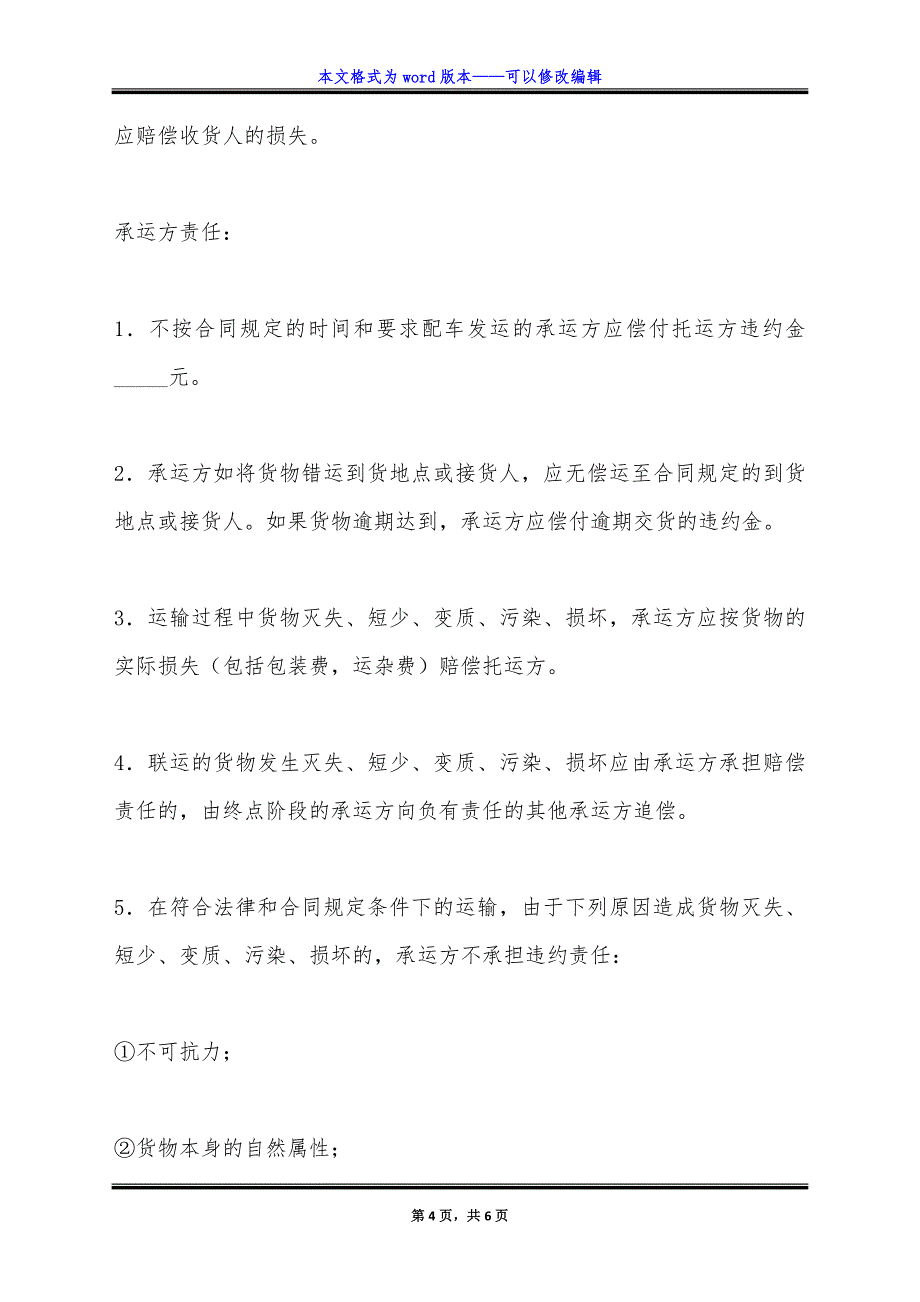 本文格式为 word 版本——可以修改编辑
应赔偿收货人的损失。
承运方责任：
1．不按合同规定的时间和要求配车发运的承运方应偿付托运方违约金
_____元。
2．承运方如将货物错运到货地点或接货人，应无偿运至合同规定的到货
地点或接货人。如果货物逾期达到，承运方应偿付逾期交货的违约金。
3．运输过程中货物灭失、短少、变质、污染、损坏，承运方应按货物的
实际损失（包括包装费，运杂费）赔偿托运方。
4．联运的货物发生灭失、短少、变质、污染、损坏应由承运方承担赔偿
责任的，由终点阶段的承运方向负有责任的其他承运方追偿。
5．在符合法律和合同规定条件下的运输，由于下列原因造成货物灭失、
短少、变质、污染、损坏的，承运方不承担违约责任：
①不可抗力；
②货物本身的自然属性；
第 4 页，共 6 页